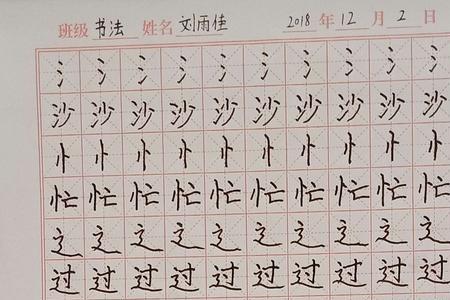 班级 书法 姓名 刘雨佳 2018 年 12 月 2 日
氵 氵 氵 氵 氵 氵 氵 氵 氵 氵
沙 沙 沙 沙 沙 沙 沙 沙 沙 沙
忄 忄 忄 忄 忄 忄 忄 忄 忄 忄
忙 忙 忙 忙 忙 忙 忙 忙 忙 忙
辶 辶 辶 辶 辶 辶 辶 辶 辶 辶
过 过 过 过 过 过 过 过 过 过